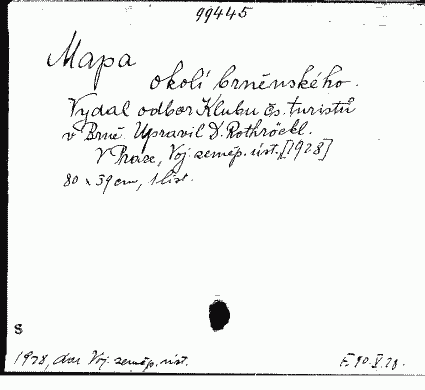 99445
Mapa
okolí brněnského.
Vydal odbor Klubu čs. turistů
v Brně. Upravil D. Rothröckl.
V Praze, Voj. zeměp. úst. [1928]
80 x 39 cm, 1 list.
S
1928, dar Voj. zeměp. úst.